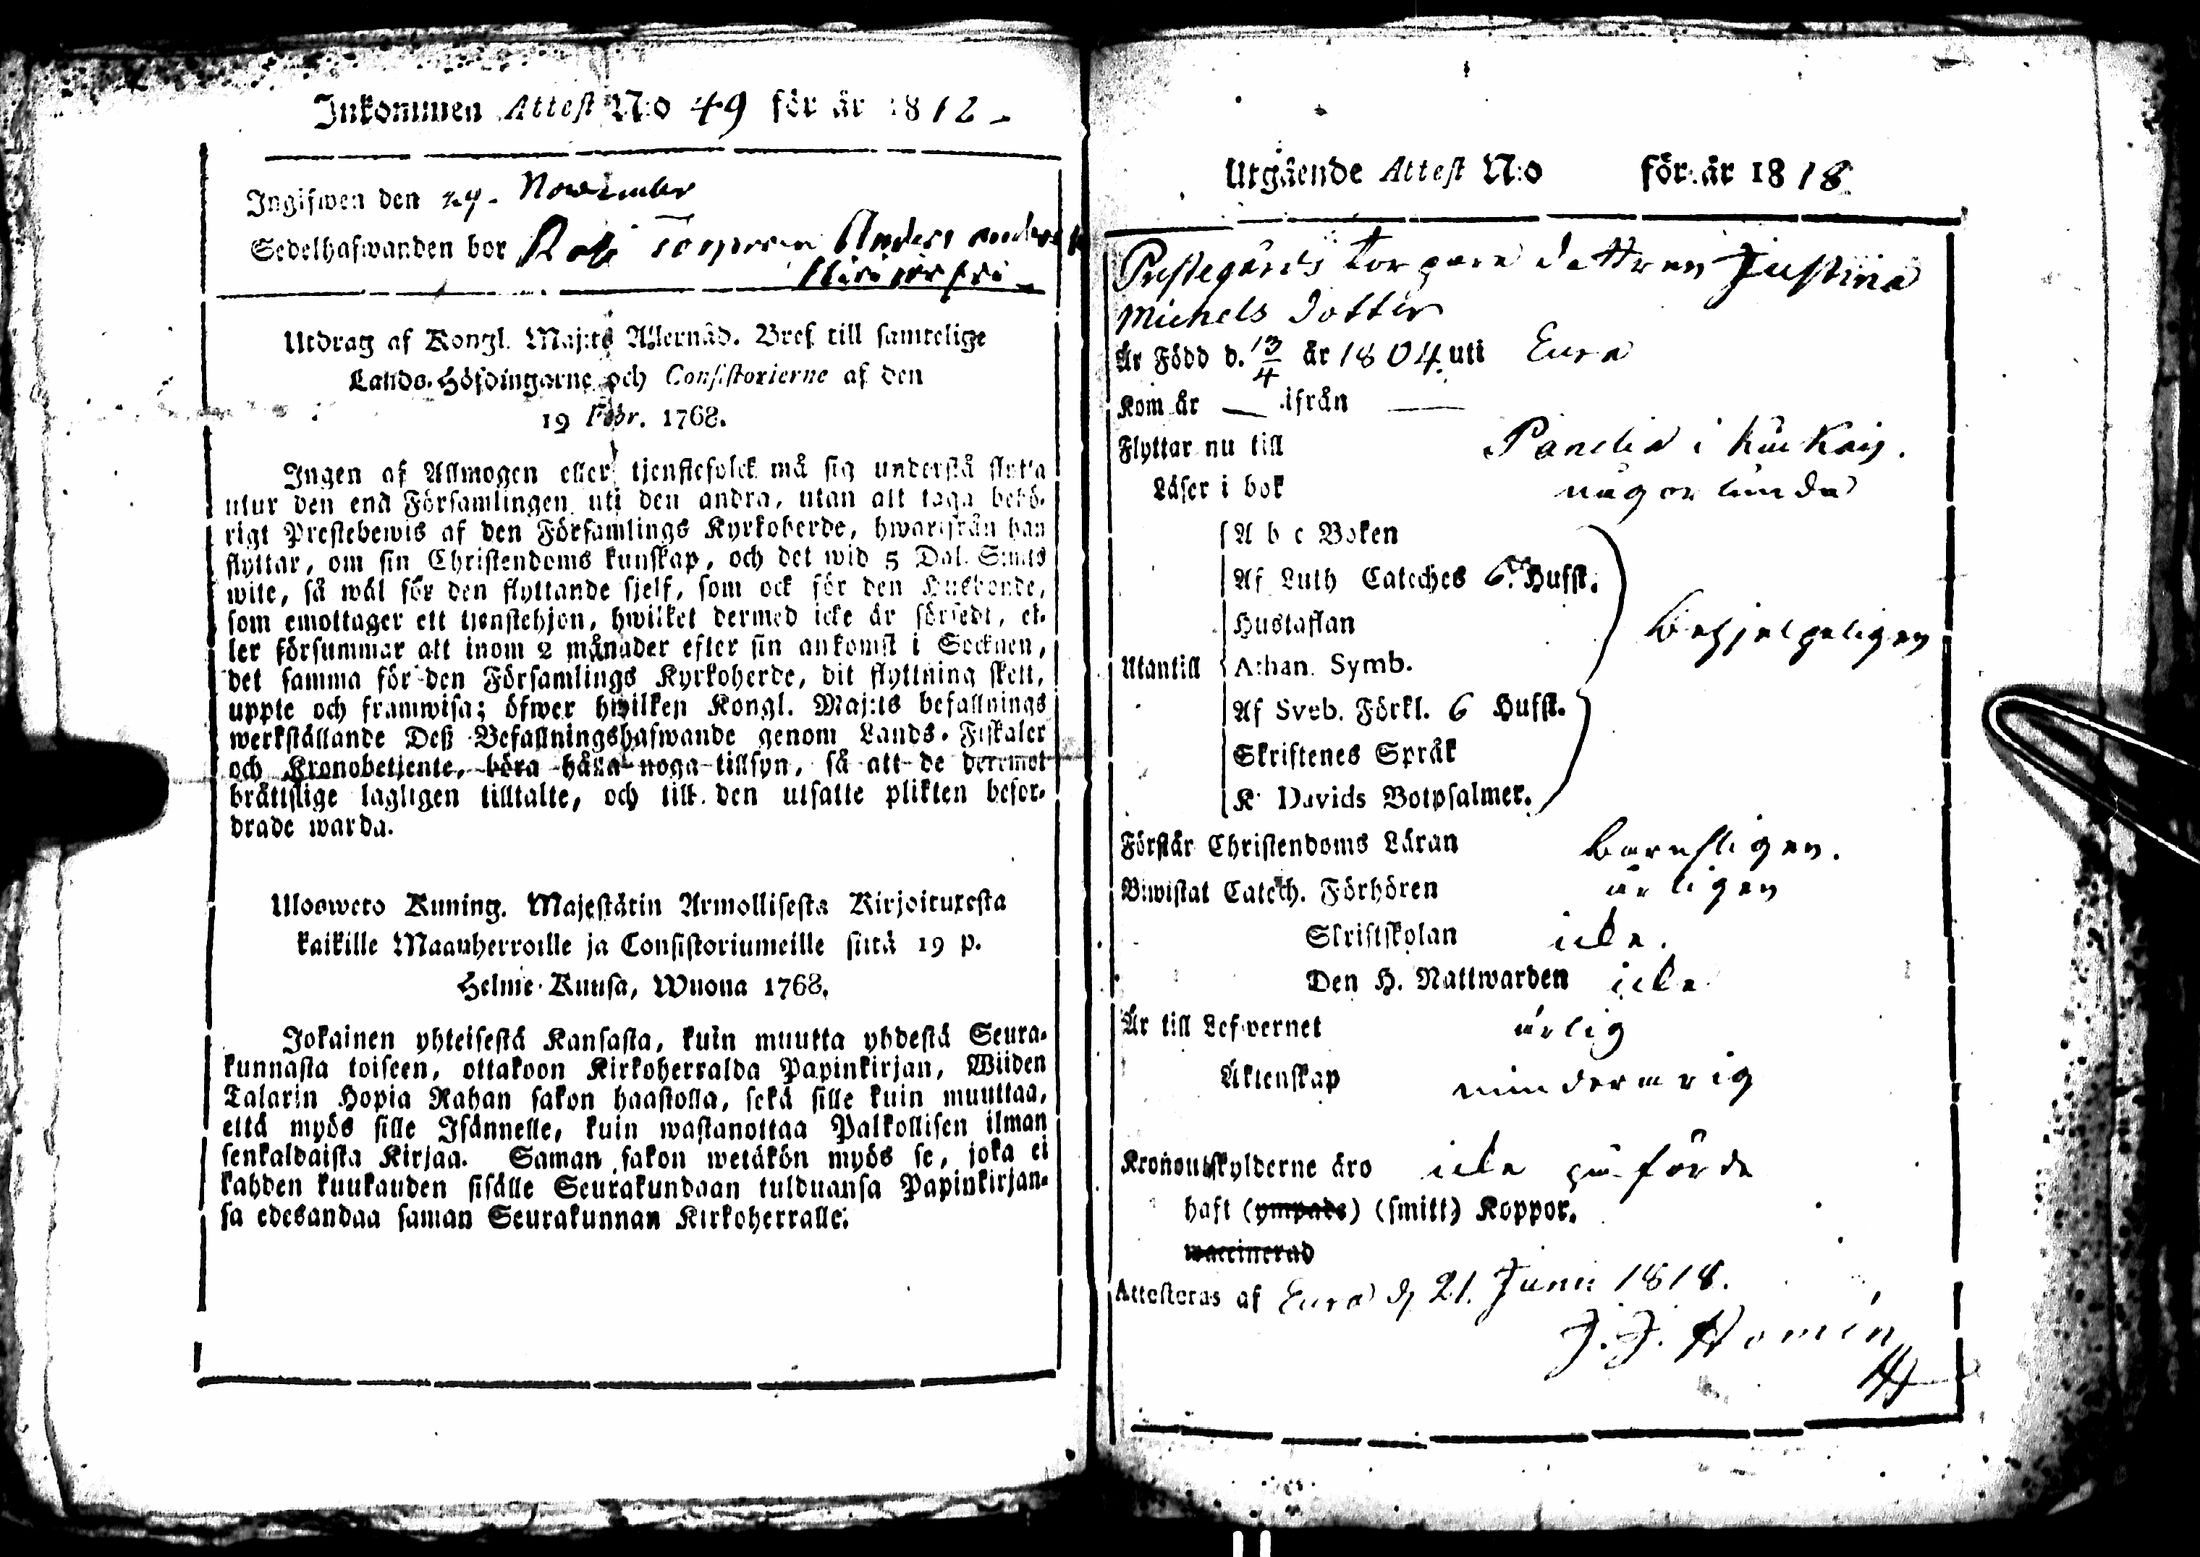 Inkommen Attest N:o 49 för år 1812
Ingifwen den 29. November
Sedelhafwanden bor
Utdrag af Kongl. Maj:ts Allernåd. Bref till samtelige
Lands-Höfdingarne och Consistorierne af den
19 Febr. 1768.
Ingen af Allmogen eller tjenstefolck må sig understå flytta
utur den ena Församlingen uti den andra, utan att taga behö-
rigt Prestebewis af den Församlings Kyrkoherde, hwarifrån han
flyttar, om sin Christendoms kunskap, och det wid 5 Dal. S:mts
wite, så wäl för den flyttande sjelf, som ock för den Husbonde,
som emottager ett tjenstehjon, hwilket dermed icke är försedt, el-
ler försummar att inom 2 månader efter sin ankomst i Socknen,
det samma för den Församlings Kyrkoherde, dit flyttning skett,
uppte och framwisa; öfwer hwilken Kongl. Maj:ts befallnings
werkställande Deß Befallningshafwande genom Lands-Fiskaler
och Kronobetjente, böra hålla noga tillsyn, så att de deremot
bråttslige lagligen tilltalte, och till den utsatte plikten befor-
drade warda.
Uloswero Kuning. Majestätin Armollisesta Kirjoituxesta
kaikille Maanherroille ja Consistoriumeille siitä 19 p.
Helme-Kuusa, Wuona 1768.
Jokainen yhteisestä Kansasta, kuin muutta yhdestä Seura-
kunnasta toiseen, ottakoon Kirkoherralda Papinkirjan, Wiiden
Talarin Hopia Rahan sakon haastolla, sekä sille kuin muuttaa,
että myös sille Isännelle, kuin wastanottaa Palkollisen ilman
senkaldaista Kirjaa. Saman sakon wetäkön myös se, joka ei
kahden kuukauden sisälle Seurakundaan tulduansa Papinkirjan-
sa edesandaa saman Seurakunnan Kirkoherralle.
Utgående Attest N:o för år 1818
Prestegårds torpare dottren Justina
Michels dotter
Är Född d. 13/4 år 1804 uti Eura
Kom år — ifrån —
Flyttar nu till Panelia i Kiukais.
Läser i bok någorlunda
A b c Boken
Af Luth Cateches 6. Hufst.
Hustaflan
Utantill Athan. Symb. behjelpeligen
Af Sveb. Förkl. 6 Hufst.
Skriftenes Språk
K. Davids Botpsalmer.
Förstår Christendoms Läran barnsligen.
Biwistat Catech. Förhören årligen
Skriftskolan icke.
Den H. Nattwarden icke
Är till Lefwernet ärlig
Äktenskap minderårig
Kronoutskylderne äro icke påförde
haft (ympade) (smitt) Koppor.
waccinerad
Attesteras af Eura d. 21. Junii 1818.
J. J. Homén